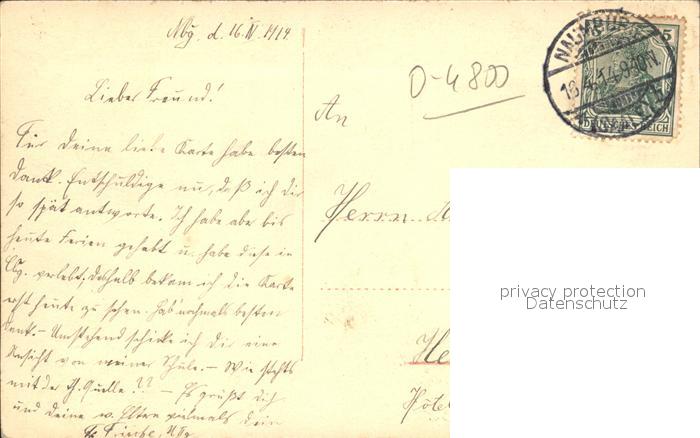 Nbg. d. 16. IV. 1914.
Lieber Freund!
Für deine liebe Karte habe besten
Dank. Entschuldige nu, daß ich dir
so spät antworte. Ich habe aber bis
heute Ferien gehabt u. habe diese in
verlebt, deshalb bekam ich die Karte
erst heute zu sehen. Hab' nochmals besten
Dank. – Umstehend schicke ich dir eine
Ansicht von meiner Schule. – Wie stehts
mit der Quelle?? – Es grüßt dich
und deine w. Eltern vielmals dein
Fr. Fritsche,
An
Herrn
Hôtel
0-4800
NAUMBURG
5
DEUTSCHES REICH
privacy protection
Datenschutz